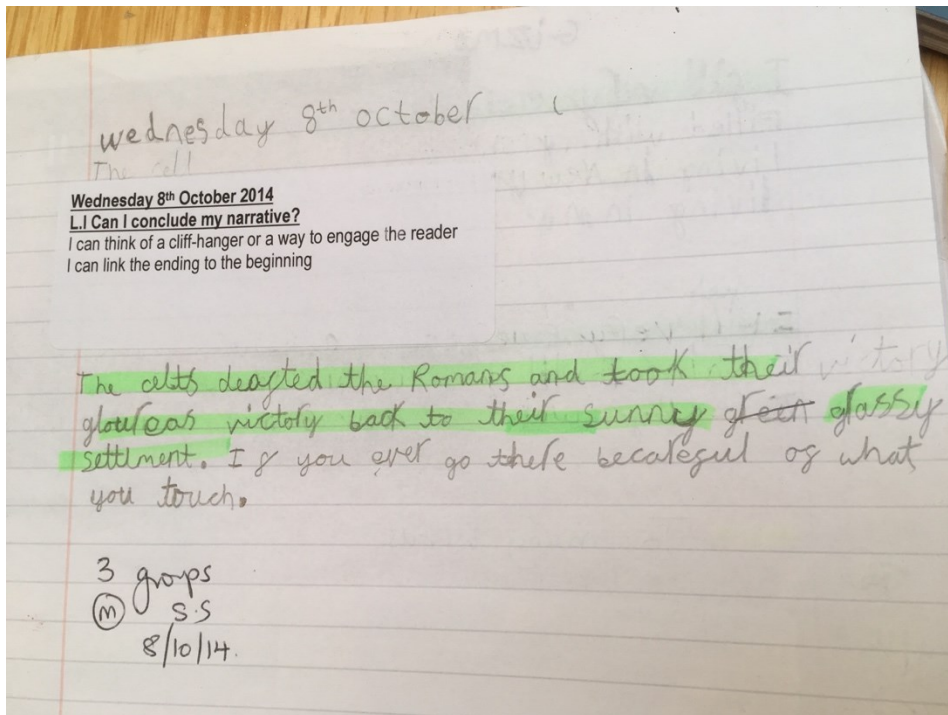 wednesday 8th october
The cell
Wednesday 8th October 2014
L.I Can I conclude my narrative?
I can think of a cliff-hanger or a way to engage the reader
I can link the ending to the beginning
The celts deafted the Romans and took their victory
gloureas victory back to their sunny green grassy
settlment. If you ever go there becalegul of what
you touch.
3 groups
m S.S
8/10/14.